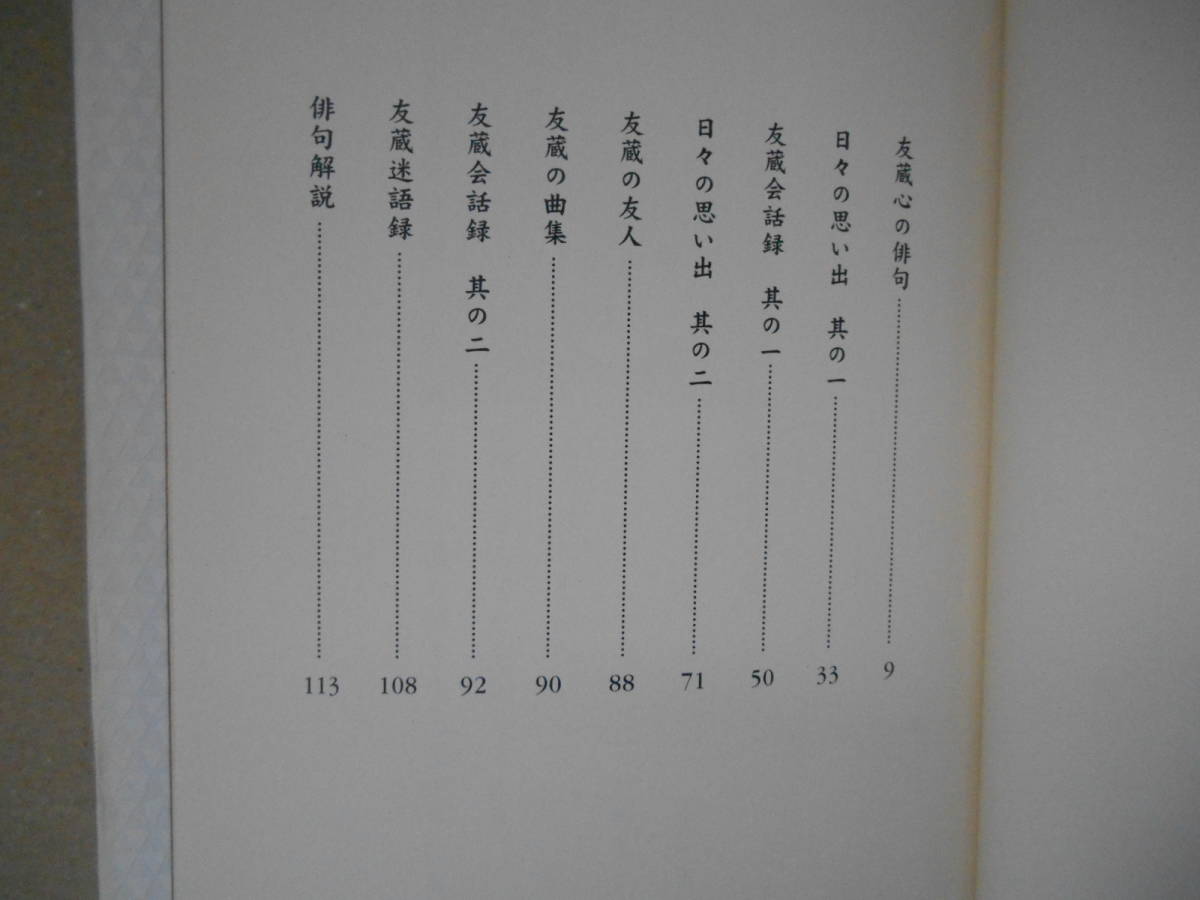 友蔵心の俳句………9
日々の思い出　其の一………33
友蔵会話録　其の一………50
日々の思い出　其の二………71
友蔵の友人………88
友蔵の曲集………90
友蔵会話録　其の二………92
友蔵迷語録………108
俳句解説………113